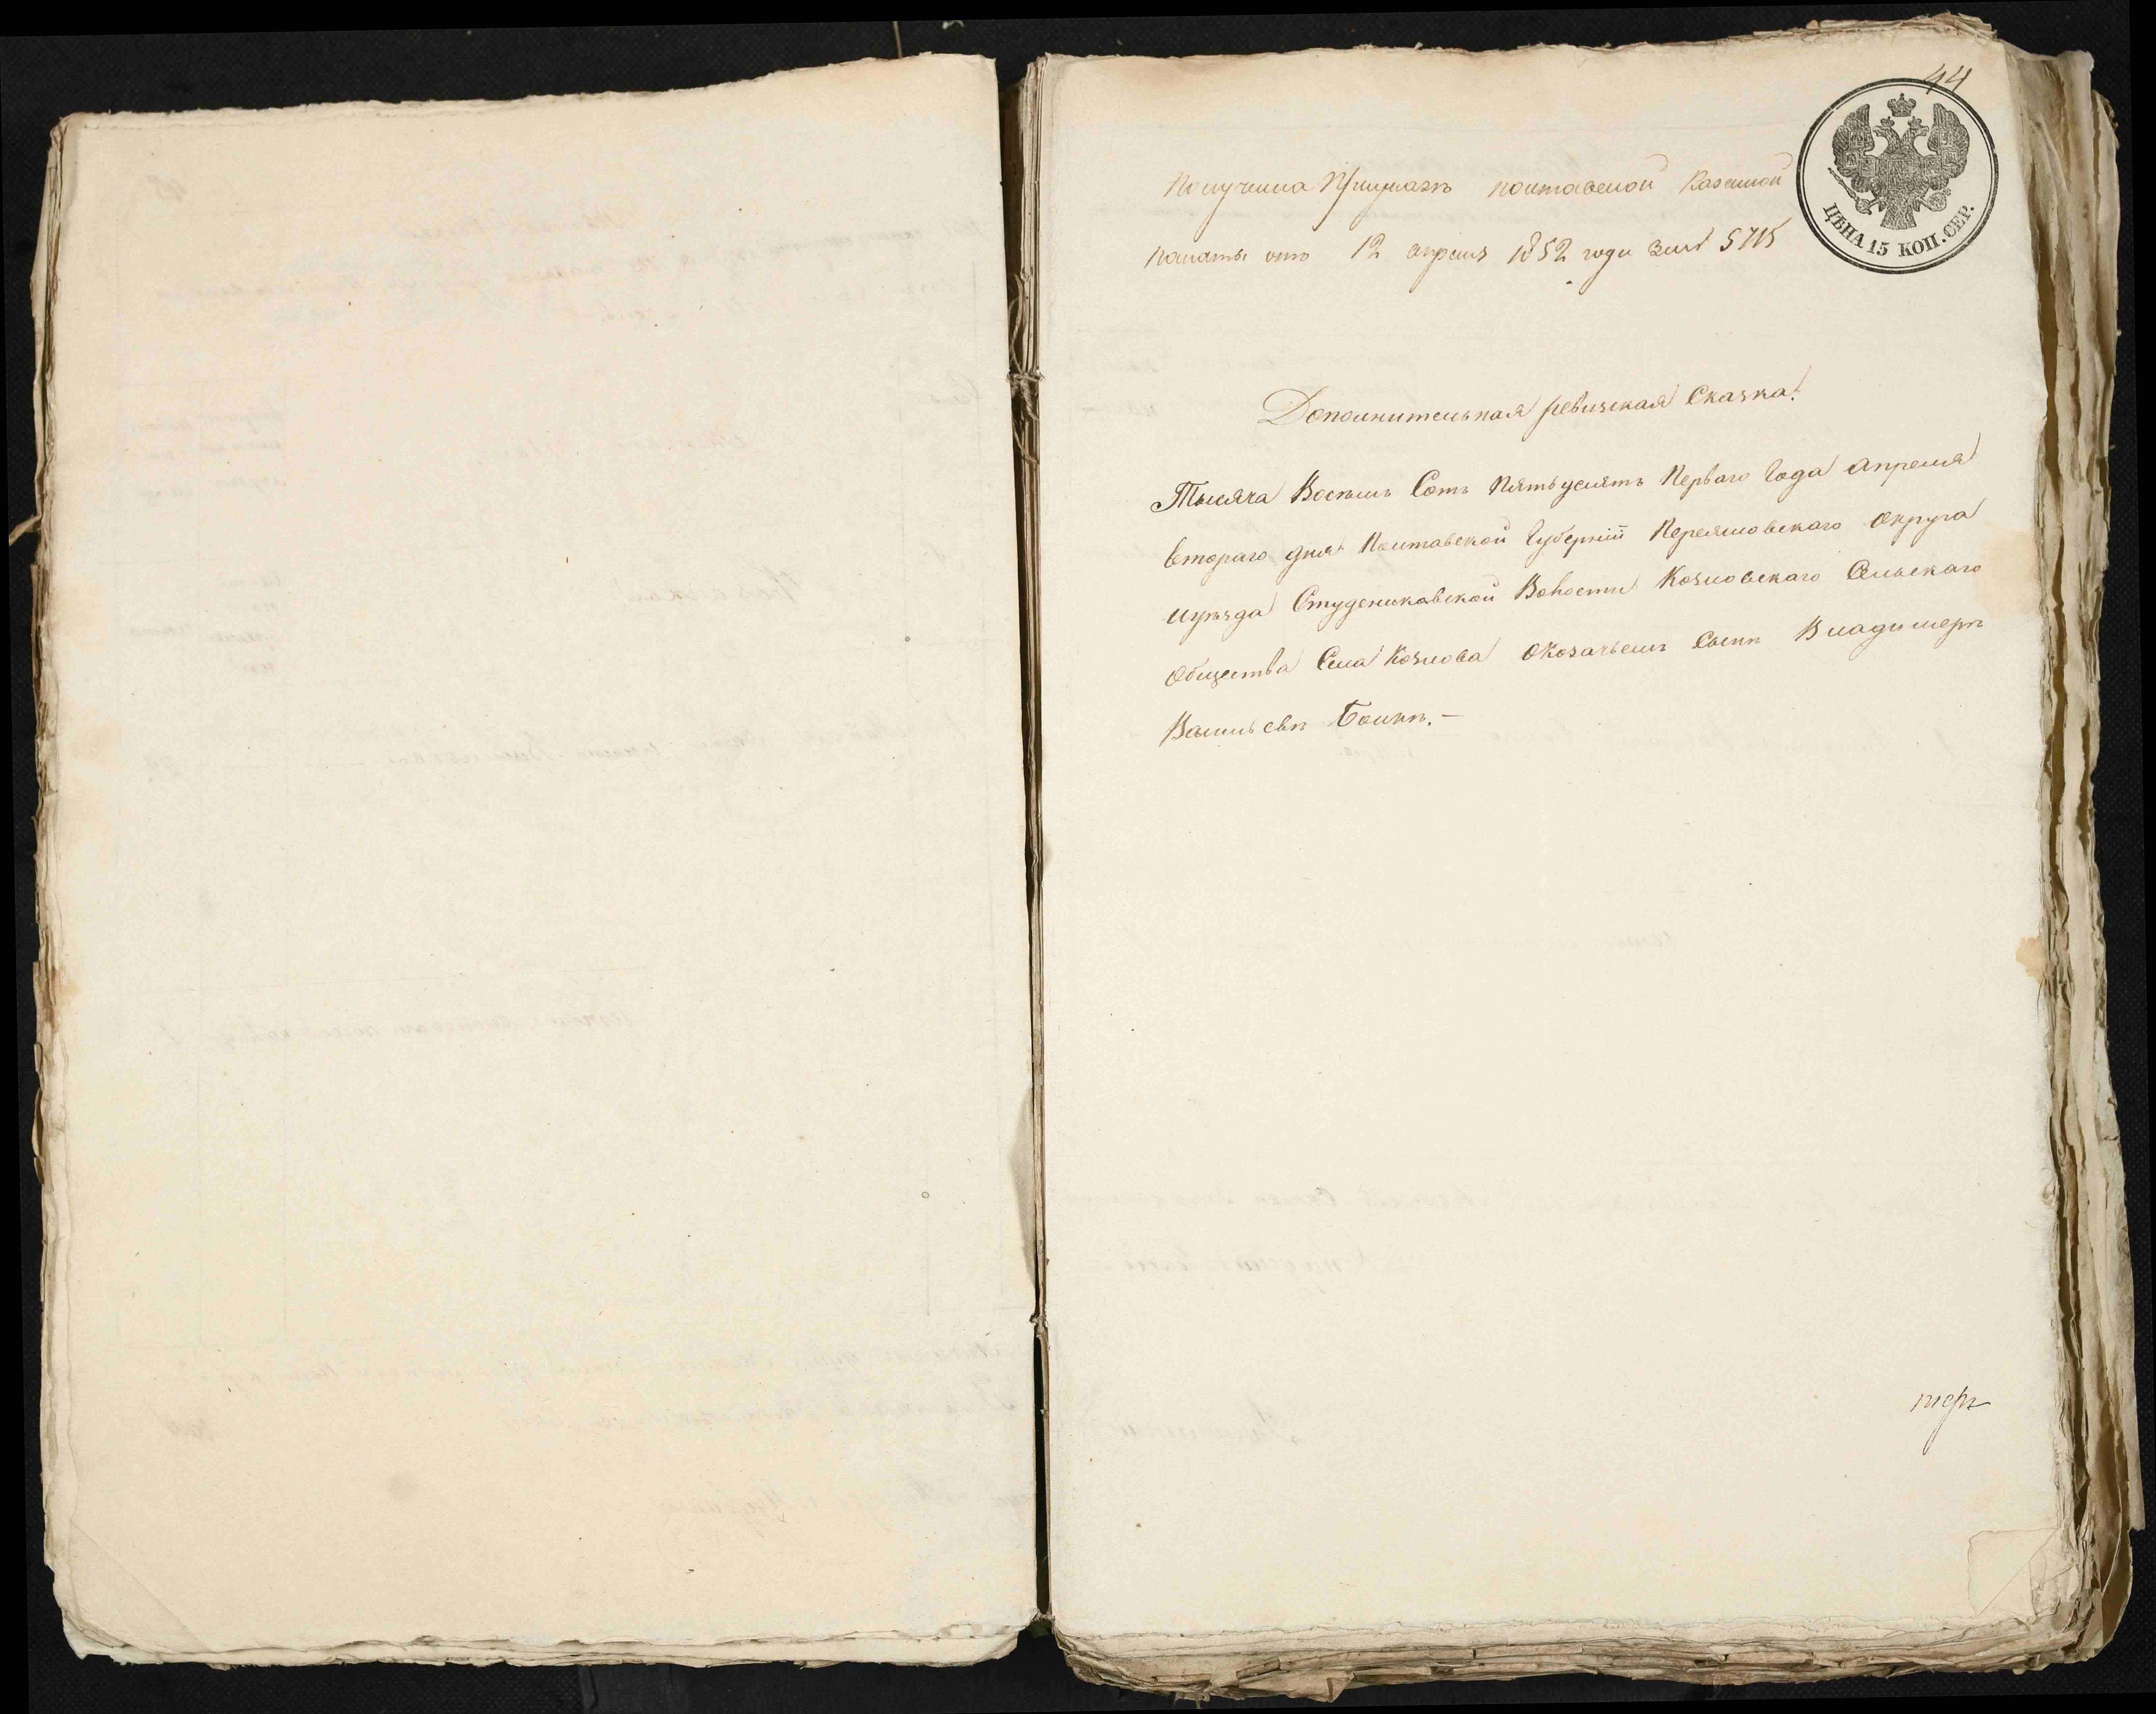 44
ЦѢНА 15 КОП. СЕР.
Получена При указѣ полтавской Казенной
палаты отъ 12 апреля 1852 года за № 5715
Дополнительная ревизская Сказка.
Тысяча Восемь Сотъ Пятьдесятъ Перваго Года Апреля
втораго дня Полтавской Губерніи Переясловскаго Округа
иуѣзда Студениковской Волости Козловскаго Сельскаго
Общества Села Козлова Оказачьемъ Сынѣ Владимерѣ
Васильевѣ Балкѣ. —